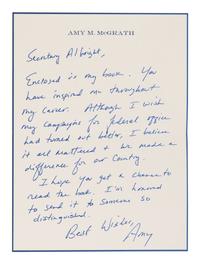 AMY M. McGRATH
Secretary Albright,
Enclosed is my book. You
have inspired me throughout
my career. Although I wish
my campaigns for federal office
had turned out better, I believe
it all mattered & we made a
difference for our country.
I hope you get a chance to
read the book. I'm honored
to send it to someone so
distinguished.
Best Wishes,
Amy